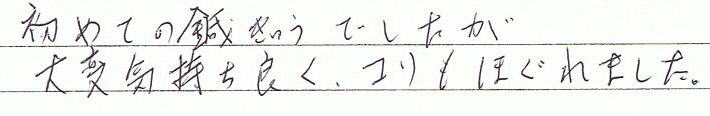 初めての鍼きゅうでしたが
大変気持ち良く、コリもほぐれました。